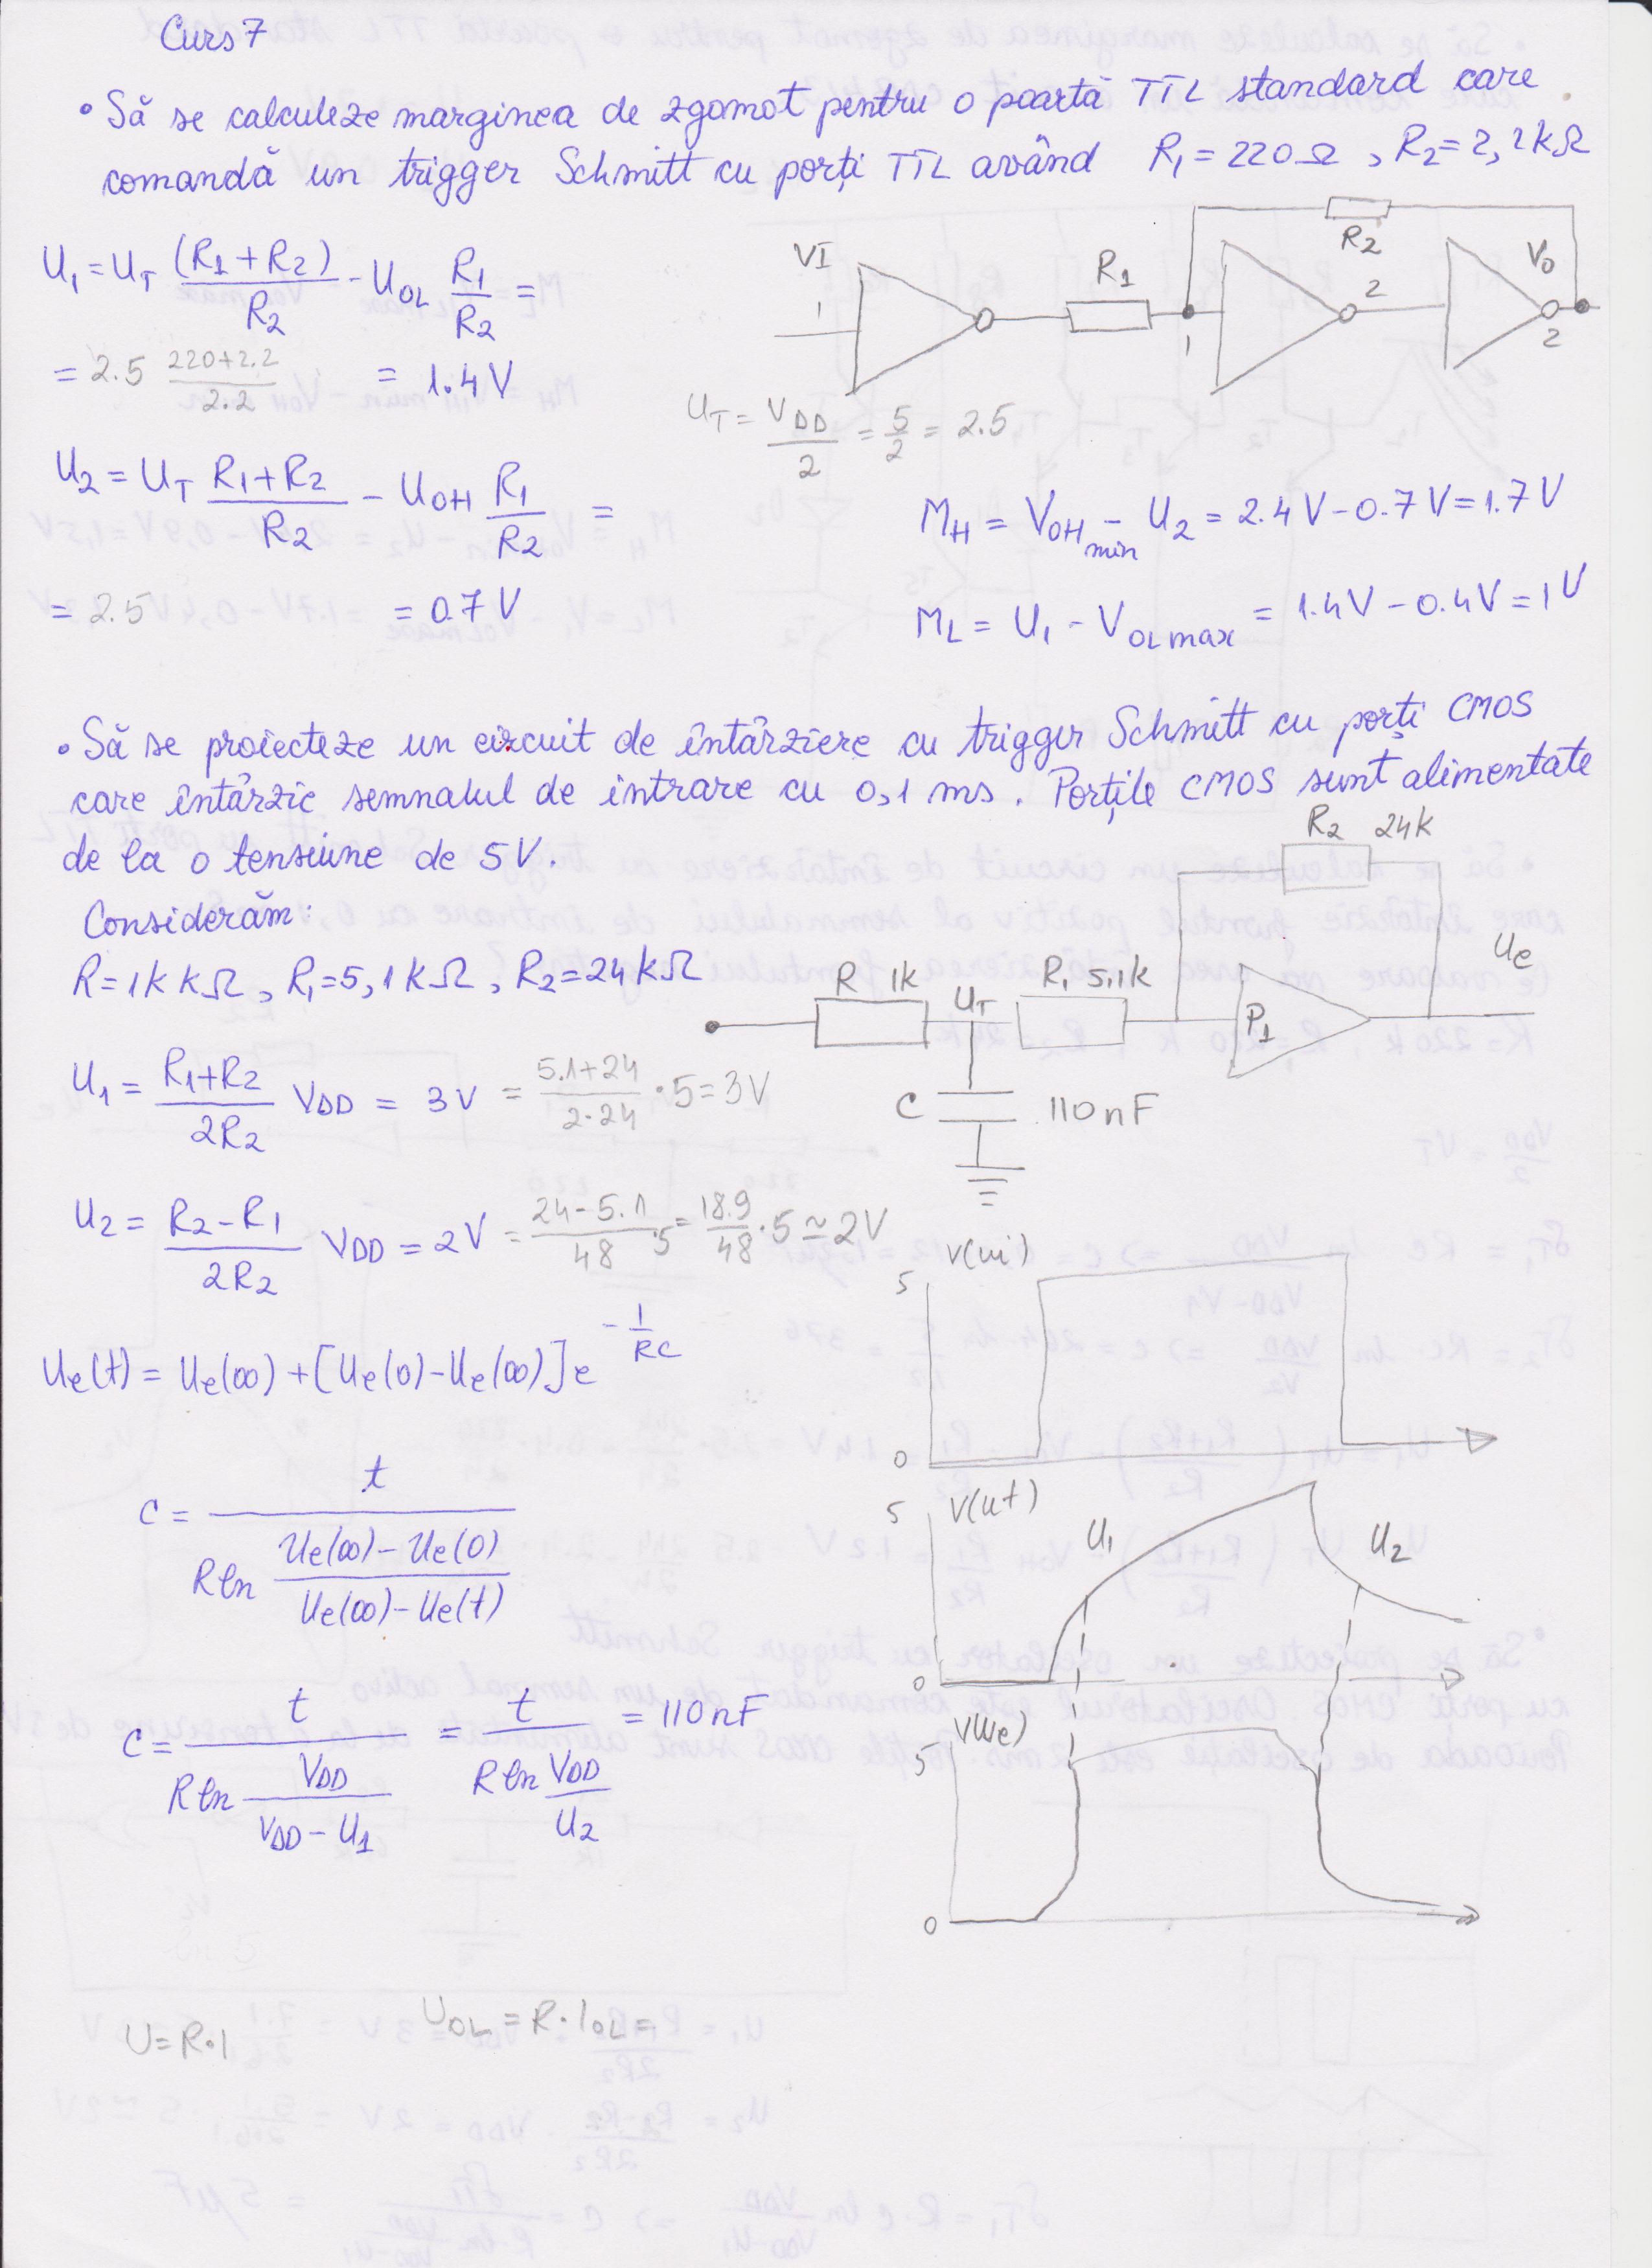 Curs 7
• Să se calculeze marginea de zgomot pentru o poartă TTL standard care
comandă un trigger Schmitt cu porți TTL având R1 = 220Ω, R2 = 2,2kΩ
U1 = UT (R1+R2)/R2 - UOL R1/R2 =
= 2.5 220+2.2/2.2 = 1.4V
VI 1 R1 1 2 R2 V0 2
UT = VDD/2 = 5/2 = 2.5
U2 = UT R1+R2/R2 - UOH R1/R2 =
= 2.5 = 0.7V
MH = VOHmin - U2 = 2.4V - 0.7V = 1.7V
ML = U1 - VOLmax = 1.4V - 0.4V = 1V
• Să se proiecteze un circuit de întârziere cu trigger Schmitt cu porți CMOS
care întârzie semnalul de intrare cu 0,1 ms. Porțile CMOS sunt alimentate
de la o tensiune de 5V.
Considerăm:
R = 1k kΩ, R1 = 5,1kΩ, R2 = 24kΩ
R2 24k
R 1k UT R1 5.1k P1 Ue
C 110nF
U1 = R1+R2/2R2 VDD = 3V = 5.1+24/2·24 · 5 = 3V
U2 = R2-R1/2R2 VDD = 2V = 24-5.1/48 ·5 = 18.9/48 · 5 ≃ 2V
Ue(t) = Ue(∞) + [Ue(0) - Ue(∞)] e^-1/RC
C = t/(R ln Ue(∞) - Ue(0)/Ue(∞) - Ue(t))
C = t/(R ln VDD/VDD - U1) = t/(R ln VDD/U2) = 110nF
V(ui)
5
0
V(ut)
5
U1 U2
0
V(Ue)
5
0
U = R·I UOL = R·IOL =